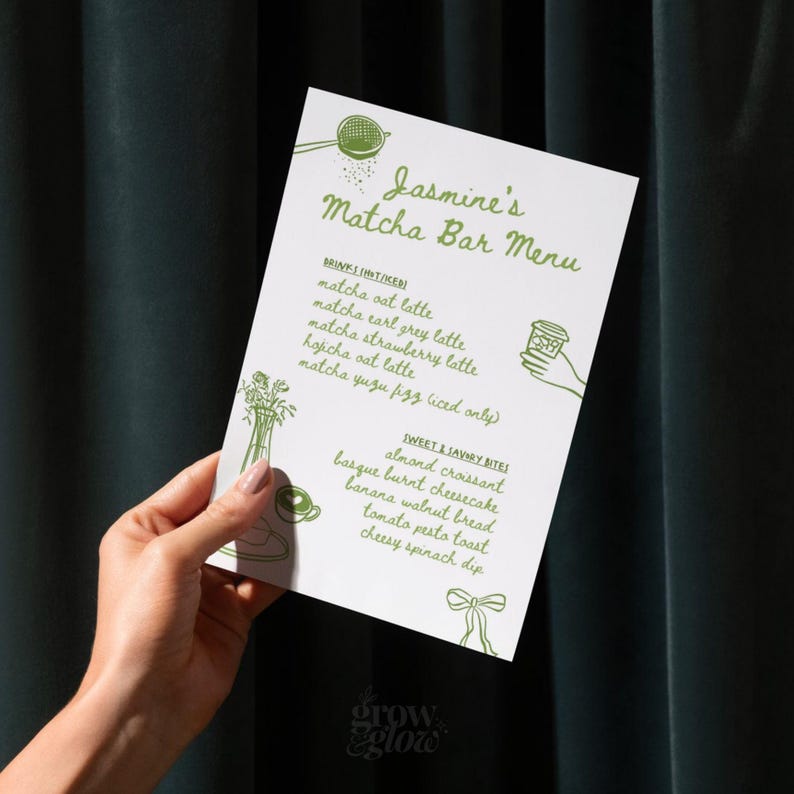 Jasmine's
Matcha Bar Menu
DRINKS (HOT/ICED)
matcha oat latte
matcha earl grey latte
matcha strawberry latte
hojicha oat latte
matcha yuzu fizz (iced only)
SWEET & SAVORY BITES
almond croissant
basque burnt cheesecake
banana walnut bread
tomato pesto toast
cheesy spinach dip
grow
& glow